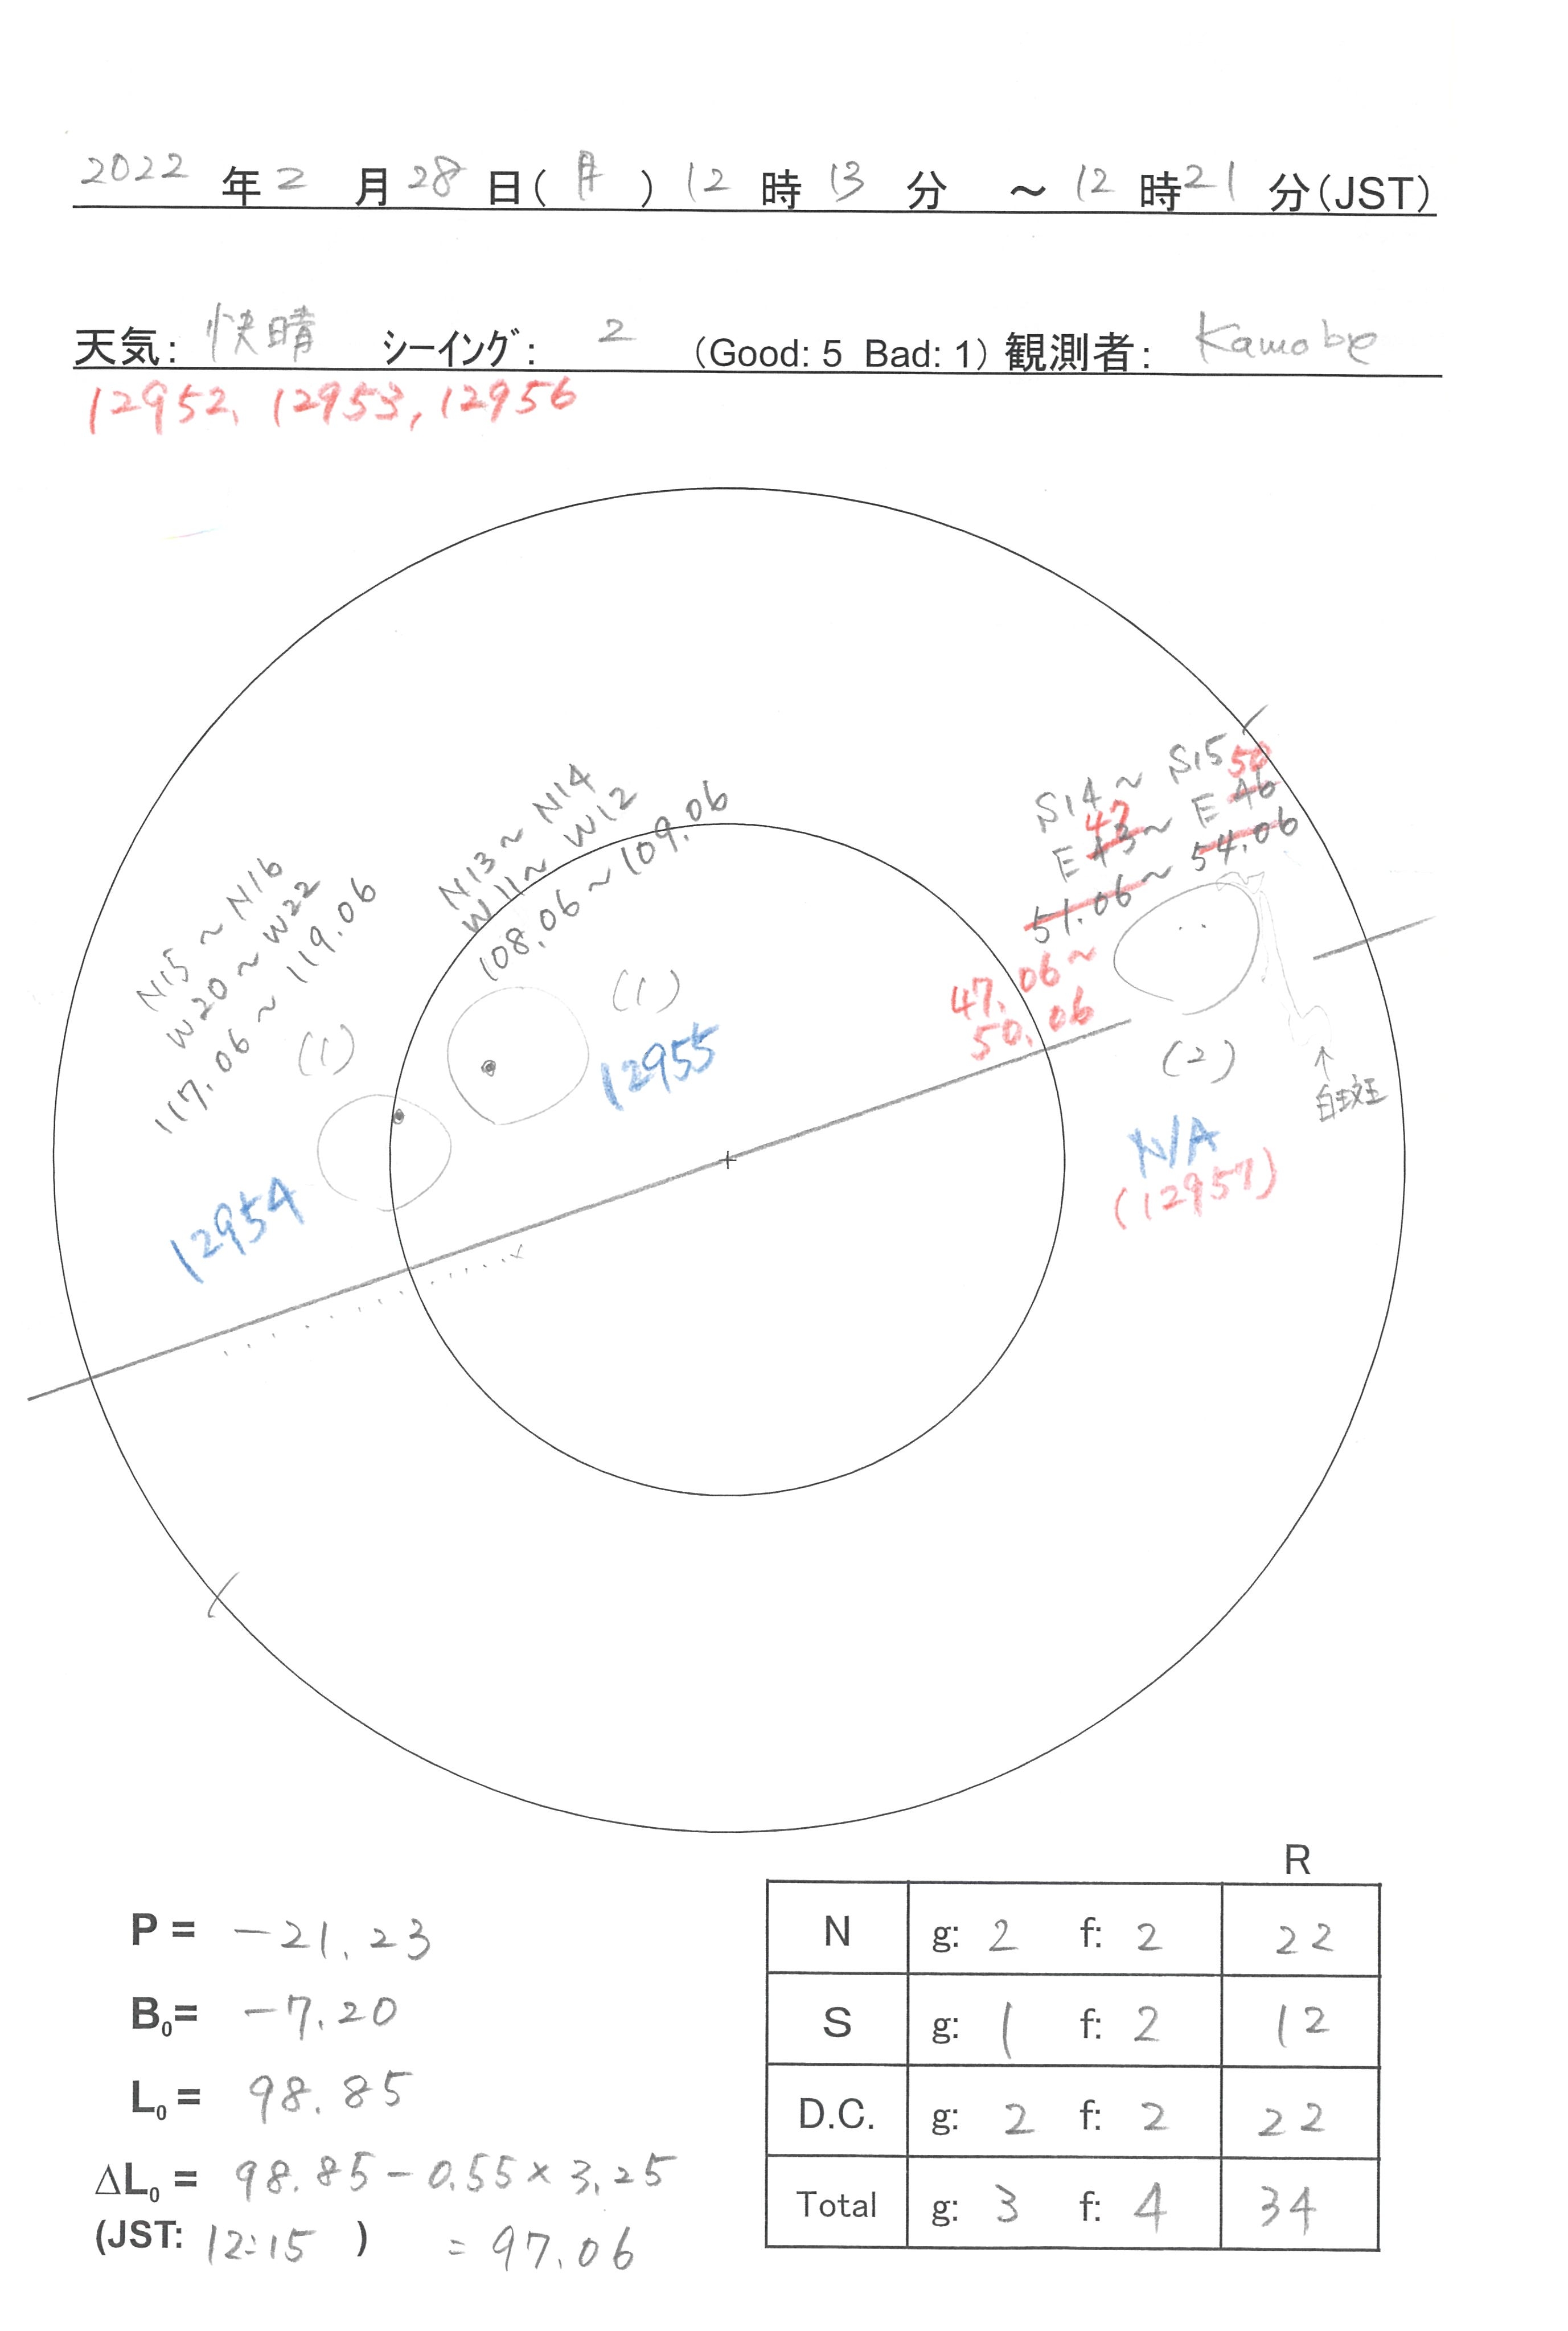 2022 年 2 月 28 日( 月 ) 12 時 13 分 ~ 12 時 21 分(JST)
天気: 快晴 シーイング: 2 (Good: 5 Bad: 1) 観測者: Kamobe
12952, 12953, 12956
S14 ~ S15
47 50
E 43 ~ E 46
51.06 ~ 54.06
47.06 ~
50.06
(2)
白斑
N/A
(12957)
N13 ~ N14
W11 ~ W12
108.06 ~ 109.06
(1)
12955
N15 ~ N16
W20 ~ W22
117.06 ~ 119.06
(1)
12954
P = -21.23
B0= -7.20
L0 = 98.85
ΔL0 = 98.85 - 0.55 × 3.25
(JST: 12:15 ) = 97.06
R
N g: 2 f: 2 22
S g: 1 f: 2 12
D.C. g: 2 f: 2 22
Total g: 3 f: 4 34